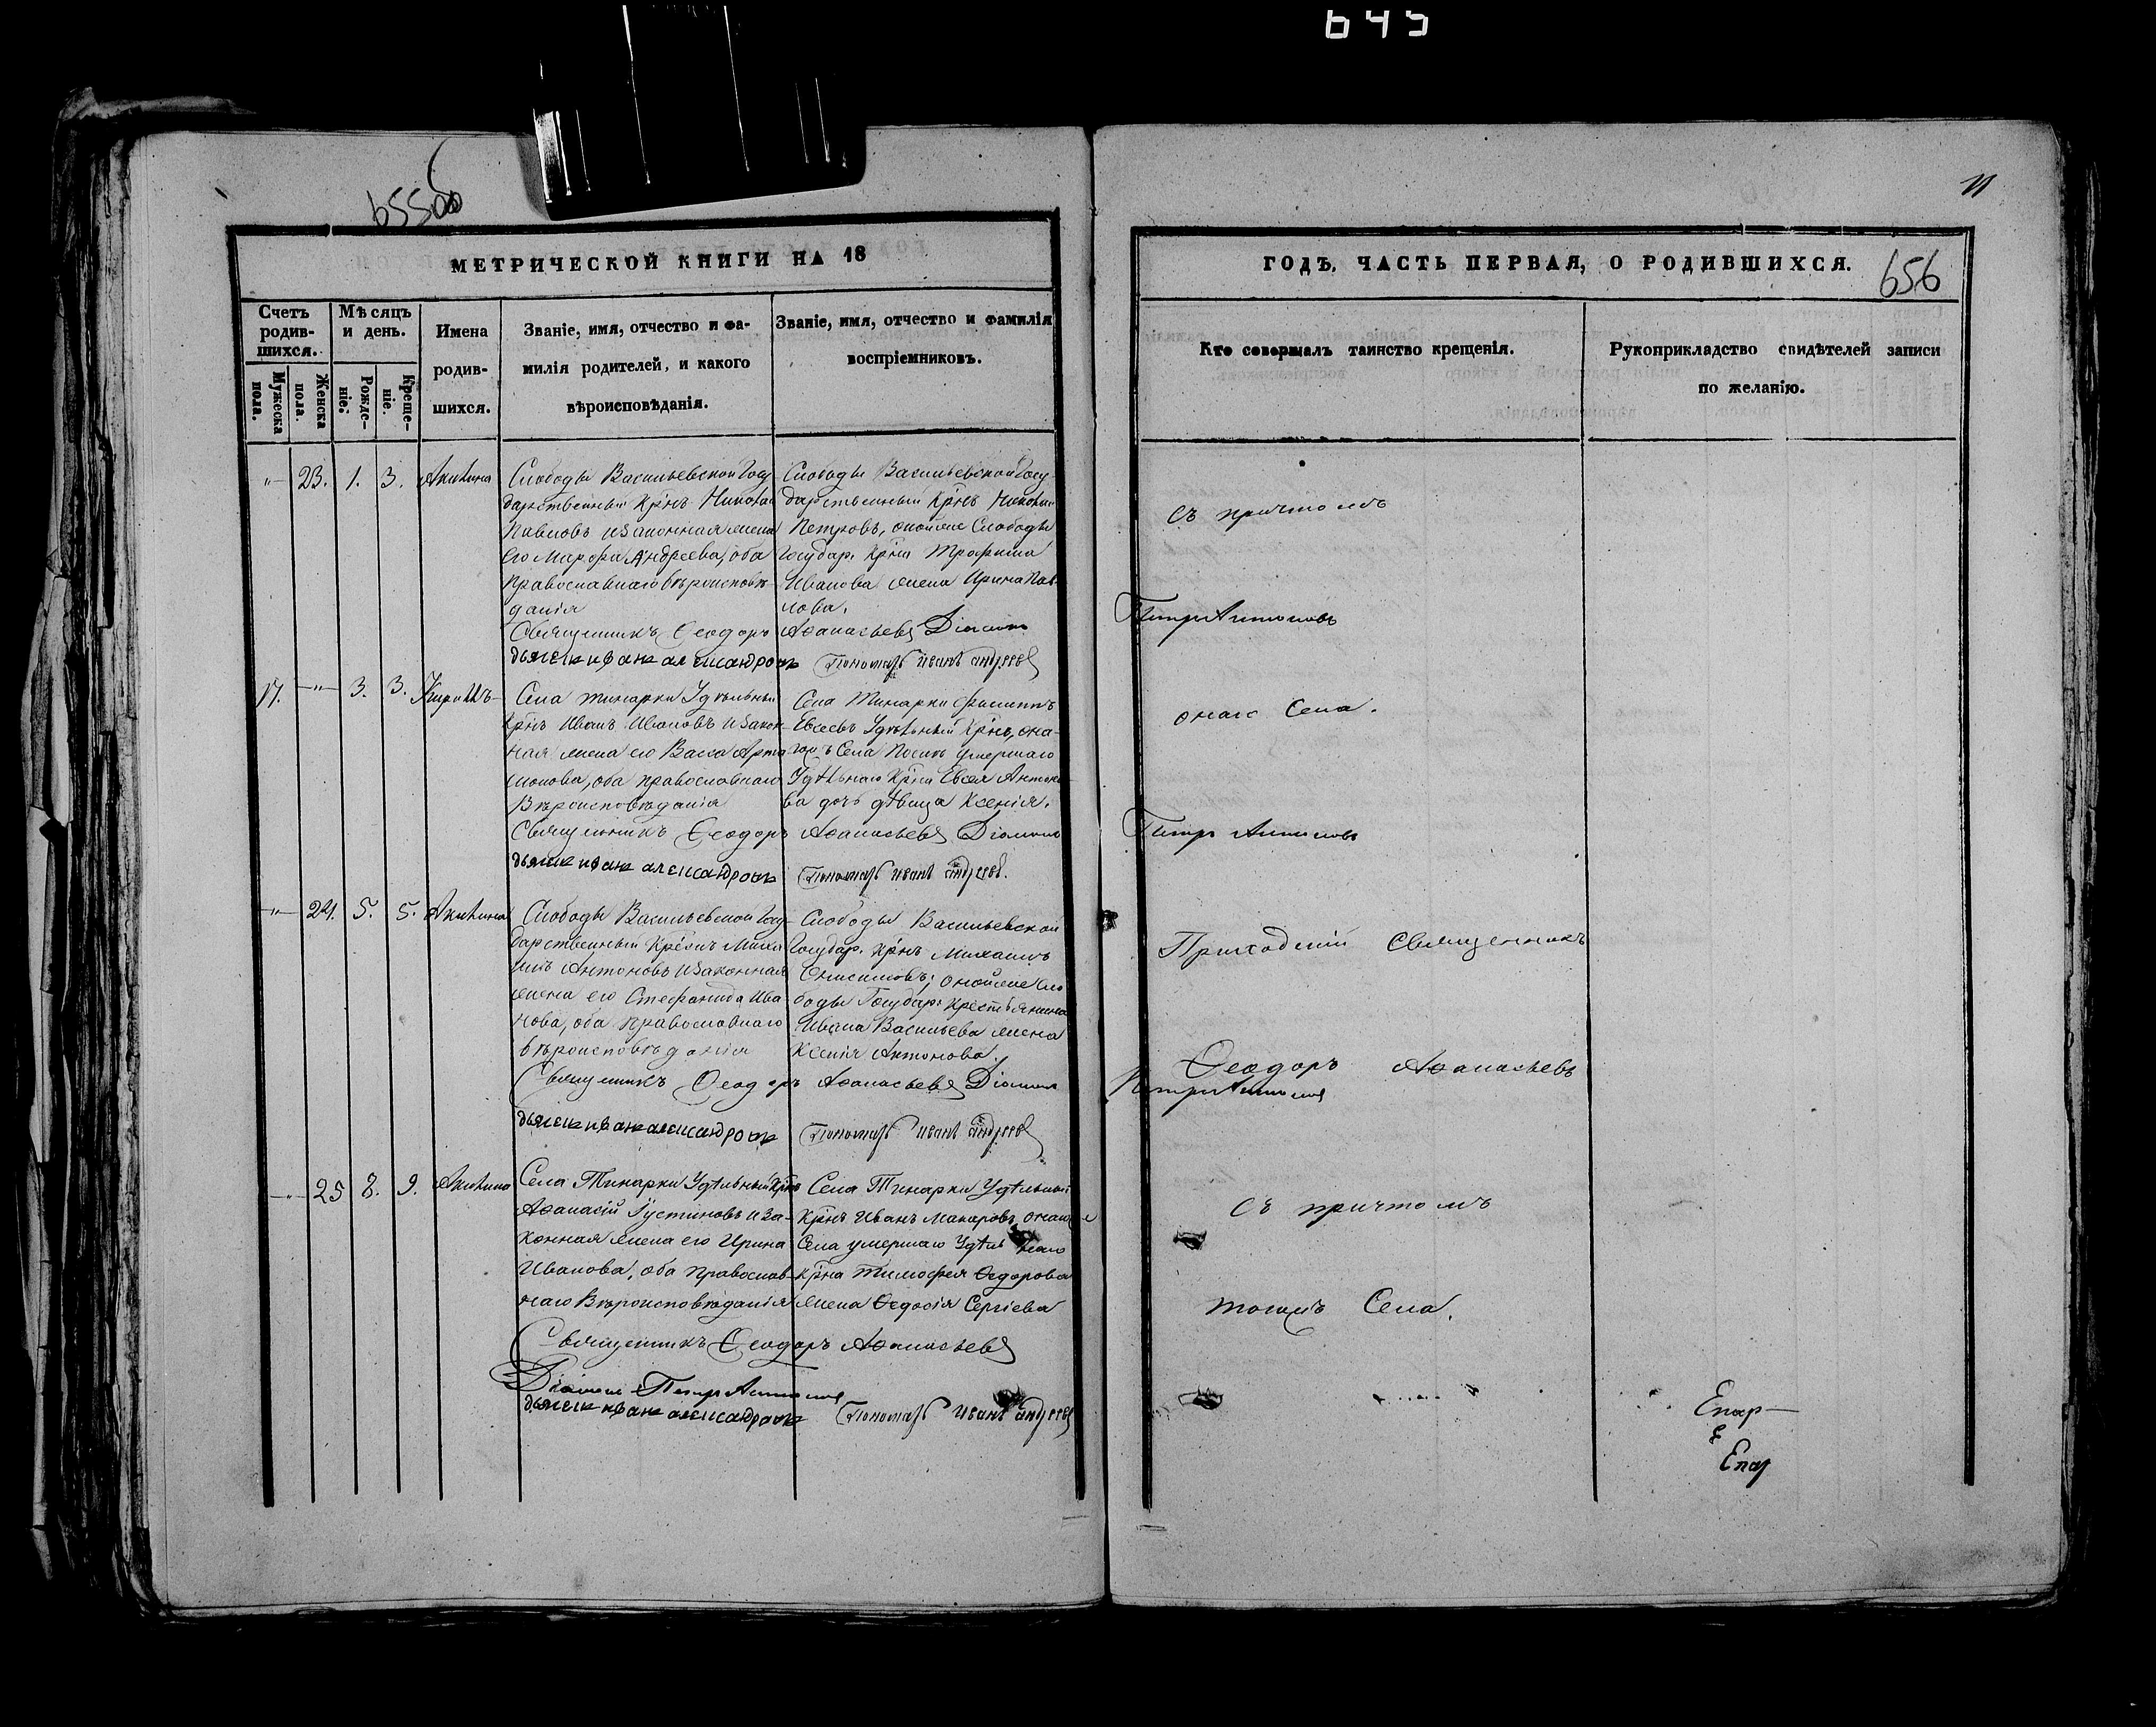 645
655об
11
МЕТРИЧЕСКОЙ КНИГИ НА 18
ГОДЪ. ЧАСТЬ ПЕРВАЯ, О РОДИВШИХСЯ.
656
Счетъ родившихся.
Мужеска пола.
Женска пола.
Мѣсяцъ и день.
Рожденіе.
Крещеніе.
Имена родившихся.
Званіе, имя, отчество и фамилія родителей, и какого вѣроисповѣданія.
Званіе, имя, отчество и фамилія воспріемниковъ.
Кто совершалъ таинство крещенія.
Рукоприкладство свидѣтелей записи по желанію.
23. 1. 3. Акилина
Слободы Васильевской Госу-
дарственный Крнъ Николай
Павловъ и законная жена
его Марфа Андреева, оба
православнаго вѣроисповѣ-
данія
Слободы Васильевской Госу-
дарственный Крнъ Николай
Петровъ, оной же Слободы
Государ. Крна Трофима
Иванова жена Ирина Пав-
лова.
Священникъ Ѳеодоръ Аѳанасьевъ Діаконъ
Петръ Антоновъ
дьячекъ иванъ александровъ
Пономарь Иванъ Андреевъ
17. 3. 3. Кириллъ
Села Тинарки Удѣльный
Крнъ Иванъ Ивановъ и закон-
ная жена его Васса Арта-
монова, оба православнаго
Вѣроисповѣданія
Села Тинарки Филиппъ
Евсеевъ Удѣльный Крнъ, она-
Села умершаго
Удѣльнаго Крна Евсея Антоно-
ва дочь дѣвица Ксенія.
Священникъ Ѳеодоръ Аѳанасьевъ Діаконъ
Петръ Антоновъ
дьячекъ иванъ александровъ
Пономарь Иванъ Андреевъ.
24. 5. 5. Акилина
Слободы Васильевской Госу-
дарственный Михаи-
лъ Антоновъ и законная
жена его Стефанида Ива-
нова, оба православнаго
вѣроисповѣданія
Слободы Васильевской
Государ. Крнъ Михаилъ
Онисимовъ; оной же Сло-
боды Государ: крестьянина
Ивана Васильева жена
Ксенія Антонова.
Священникъ Ѳеодоръ Аѳанасьевъ Діаконъ
Петръ Антоновъ
дьячекъ иванъ александровъ
Пономарь Иванъ Андреевъ
25 8. 9. Акилина
Села Тинарки Удѣльный Крнъ
Аѳанасій Іустиновъ и за-
конная жена его Ирина
Иванова, оба православ-
наго Вѣроисповѣданія
Села Тинарки Удѣльный
Крнъ Иванъ Макаровъ, онаго же
Села умершаго Удѣльнаго
Крна Тимофея Ѳедорова
жена Ѳедосія Сергіева
Священникъ Ѳеодоръ Аѳанасьевъ
Діаконъ Петръ Антоновъ
дьячекъ иванъ александровъ
Пономарь Иванъ Андреевъ
съ причтомъ
онаго Села.
Приходскій Священникъ
Ѳеодоръ Аѳанасьевъ
съ причтомъ
тогожъ Села.
Епар
Епар